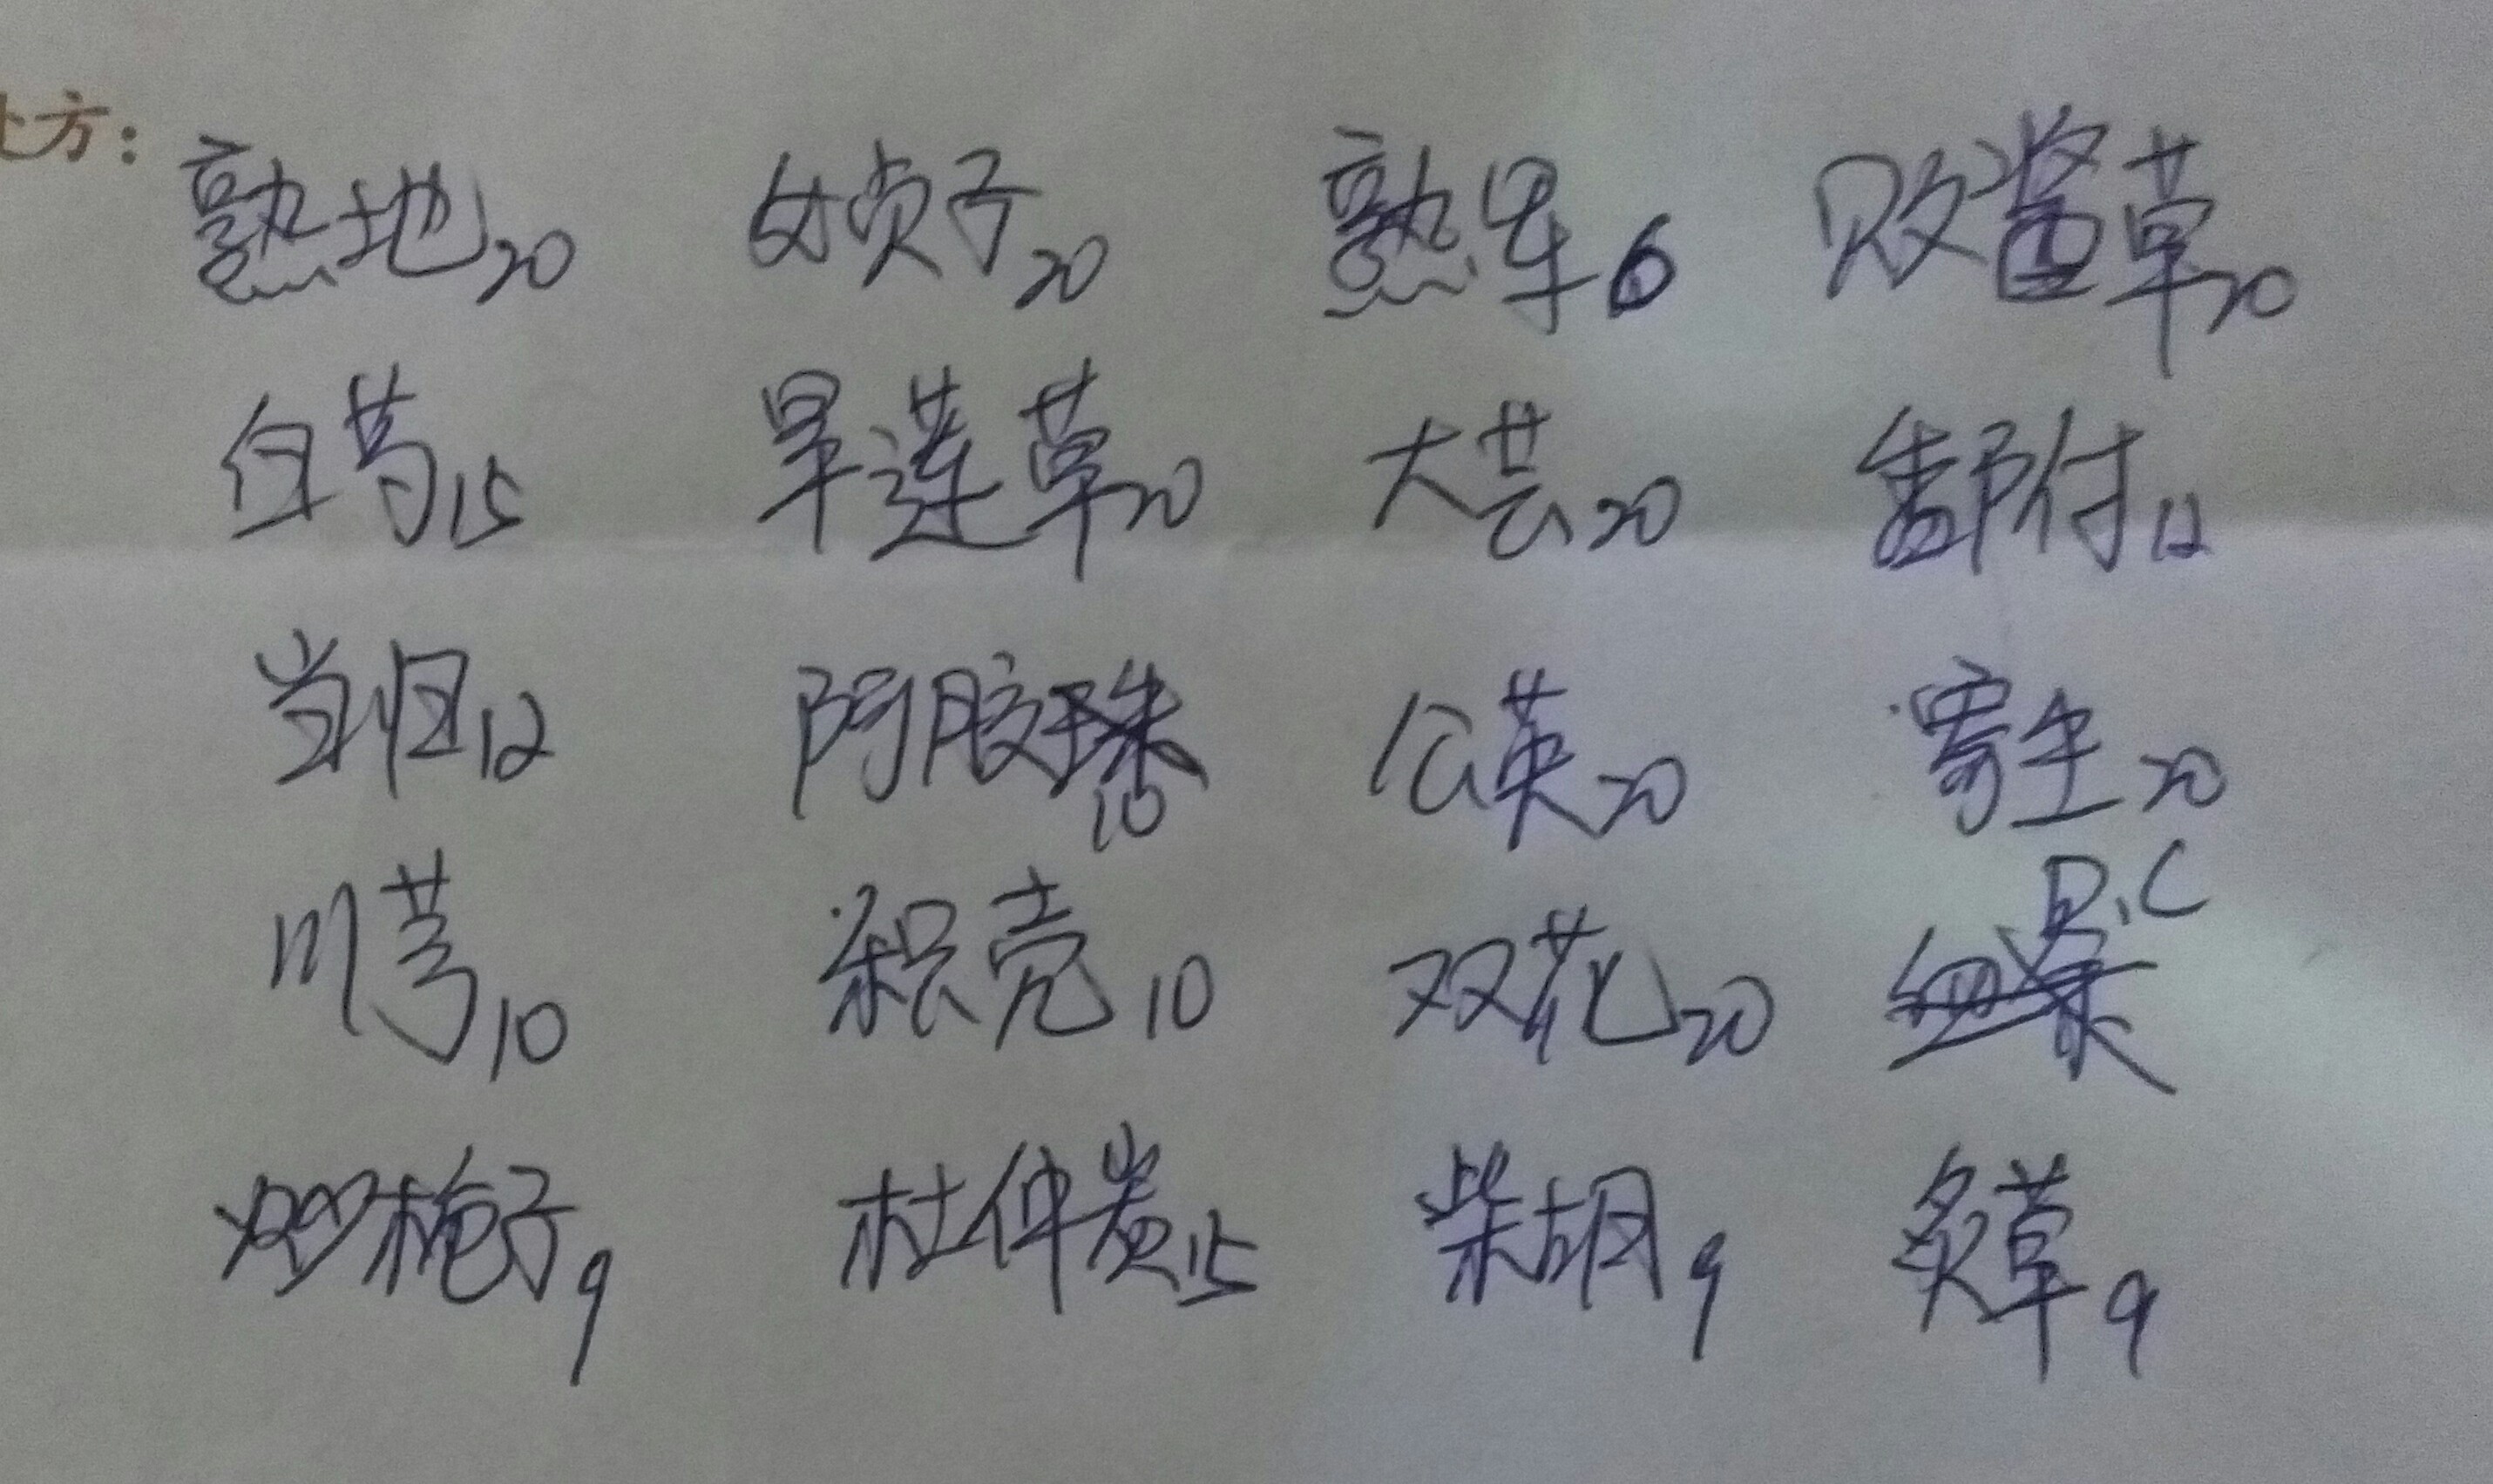 处方：
熟地20 女贞子20 熟军6 败酱草20
白芍15 旱莲草20 大芸20 香附12
当归12 阿胶珠10 公英20 寄生20
川芎10 枳壳10 双花20 D.C
炒栀子9 杜仲炭15 柴胡9 炙草9